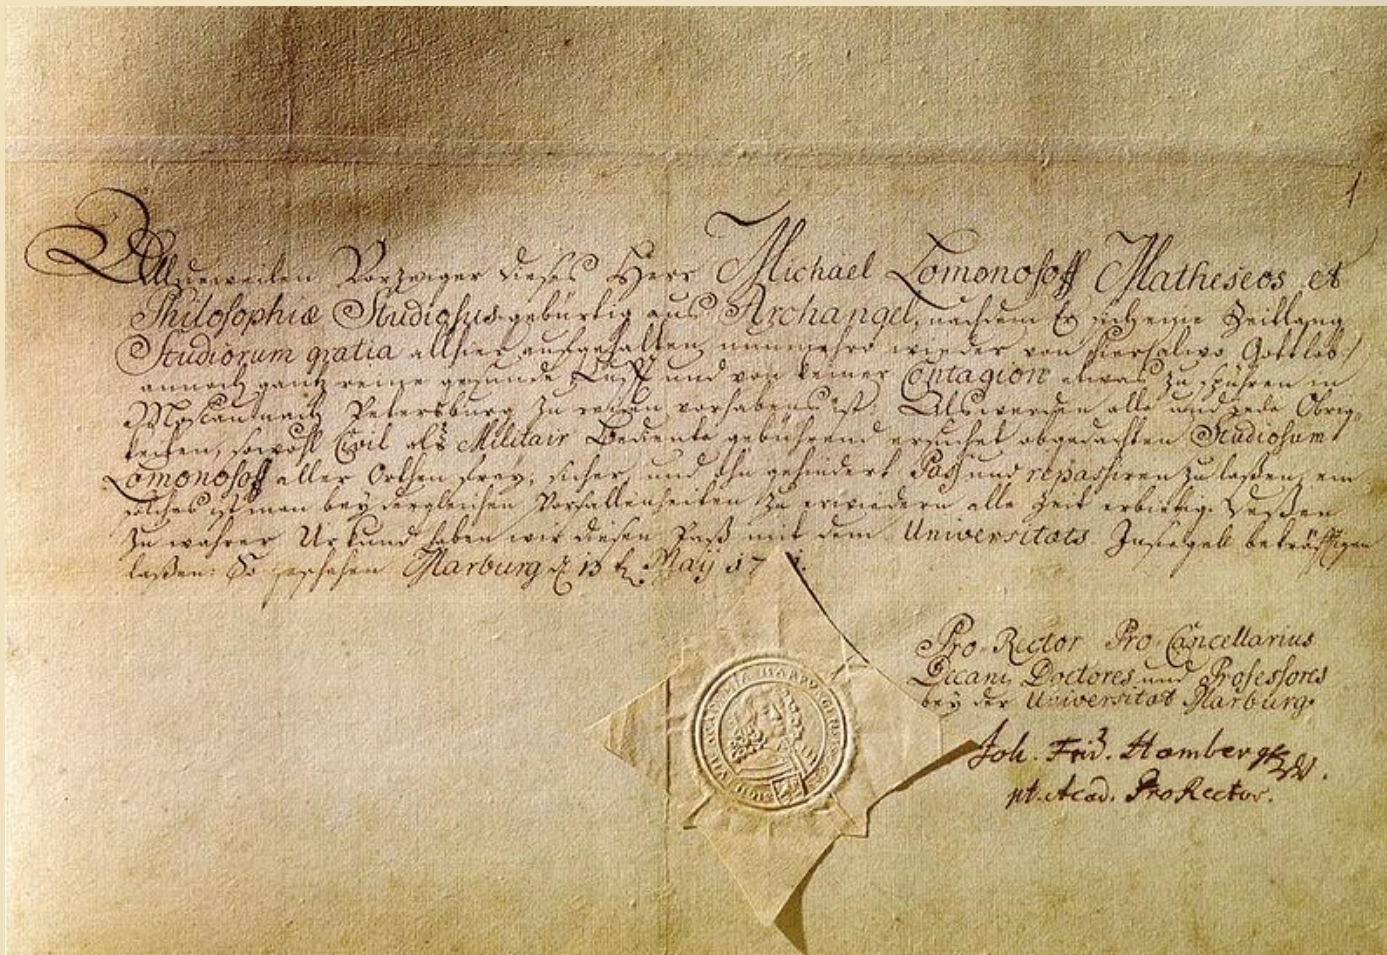 1
Alldieweilen Vorzeiger dieses Herr Michael Lomonosoff Matheseos et
Philosophiæ Studiosus gebürtig aus Archangel, nachdem Er sich eine Zeitlang
Studiorum gratia allhier aufgehalten, nunmehro wieder von hier (alwo Gottlob!
annoch gantz reine gesunde Lufft und von keiner Contagion etwas zu spühren in
Petersburg zu reisen vorhabens ist: Als werden alle und jede Obrig-
keiten, sowohl Civil als Militair Bediente gebührend ersuchet obgedachten Studiosum
Lomonosoff aller Orthen frey, sicher, und ohngehindert Pass und repassiren zu laßen, ein
solches ist man bey dergleichen Vorfallenheiten zu erwiedern alle Zeit erbietig. Deßen
zu wahrer Urkund haben wir diesen Paß mit dem Universitäts Insiegell bekräfftigen
laßen: So geschehen Marburg d. 13 May 17
Pro-Rector Pro-Cancellarius
Decani, Doctores und Professores
bey der Universität Marburg.
Joh. Frid. Homberg
pt. Acad. ProRector.